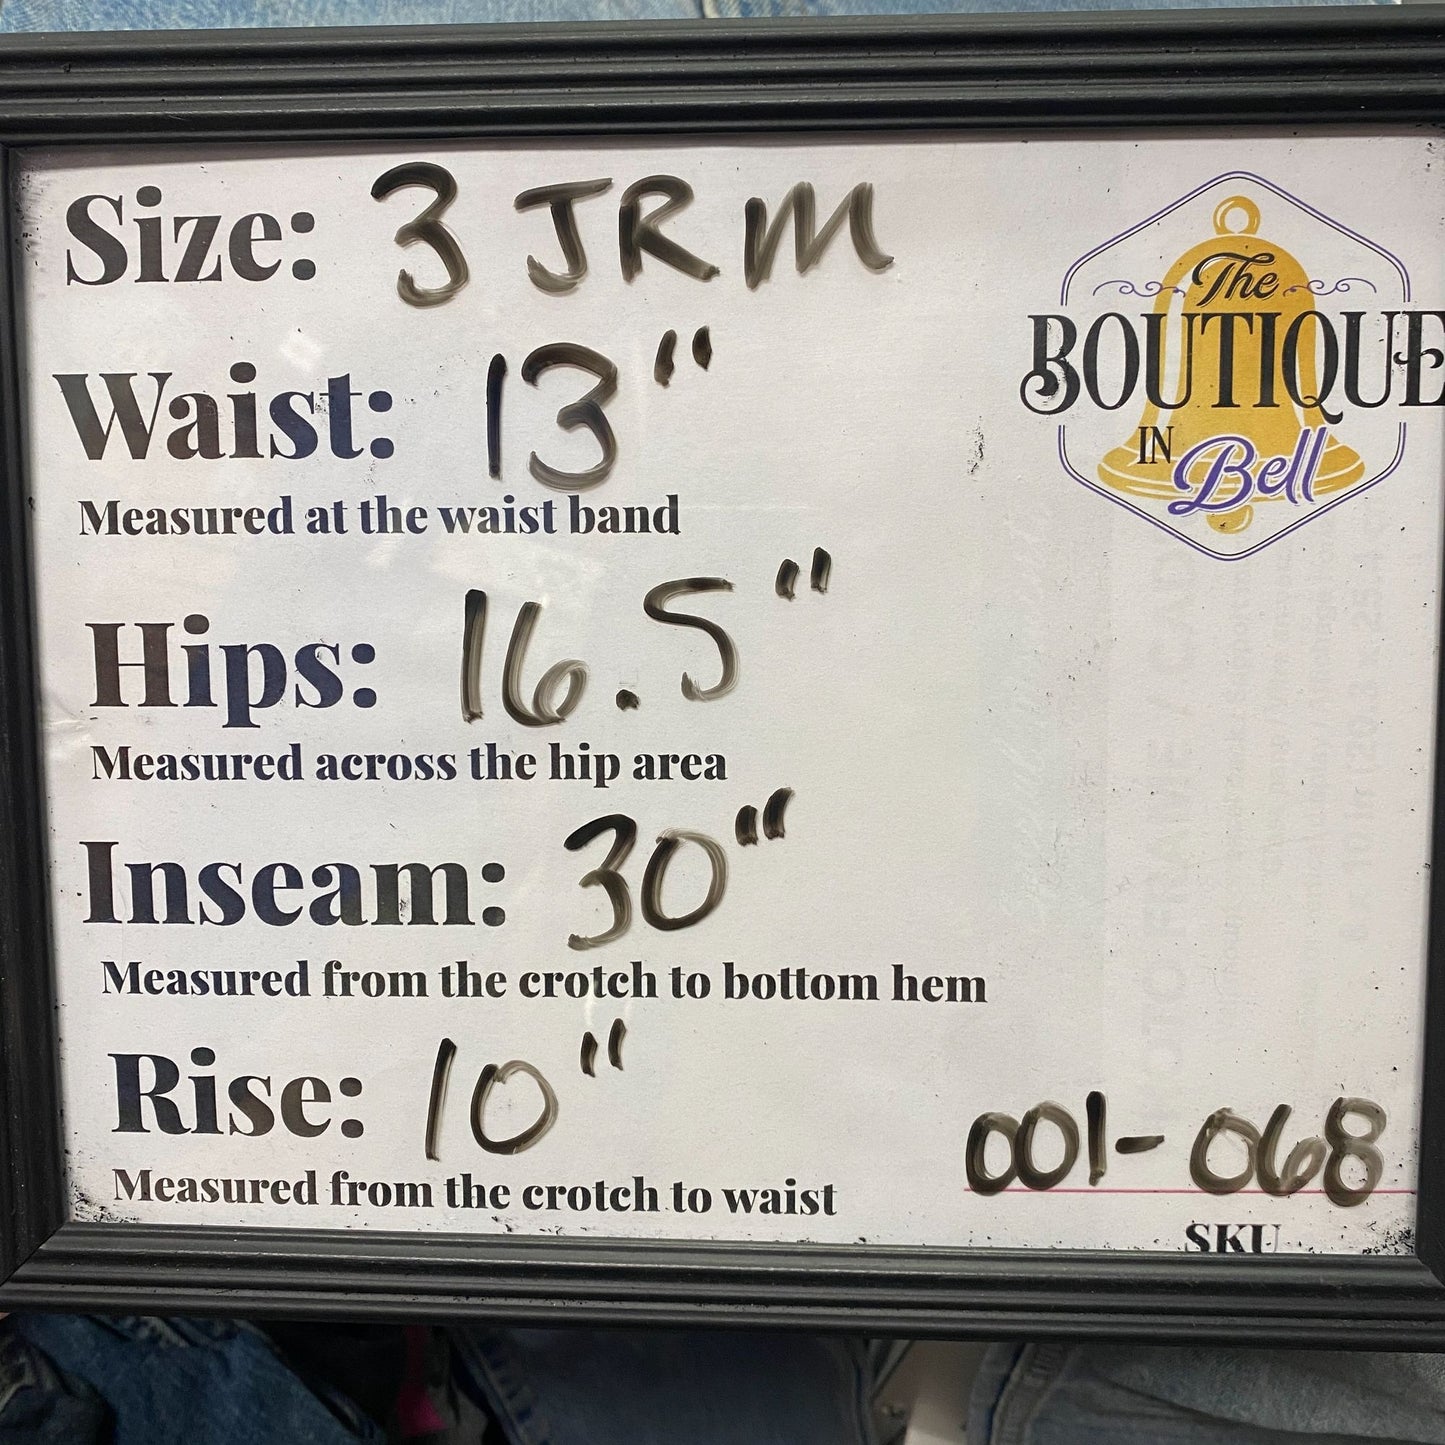 Size: 3 JRM
The
BOUTIQUE
IN Bell
Waist: 13"
Measured at the waist band
Hips: 16.5"
Measured across the hip area
Inseam: 30"
Measured from the crotch to bottom hem
Rise: 10"
Measured from the crotch to waist
001-068
SKU